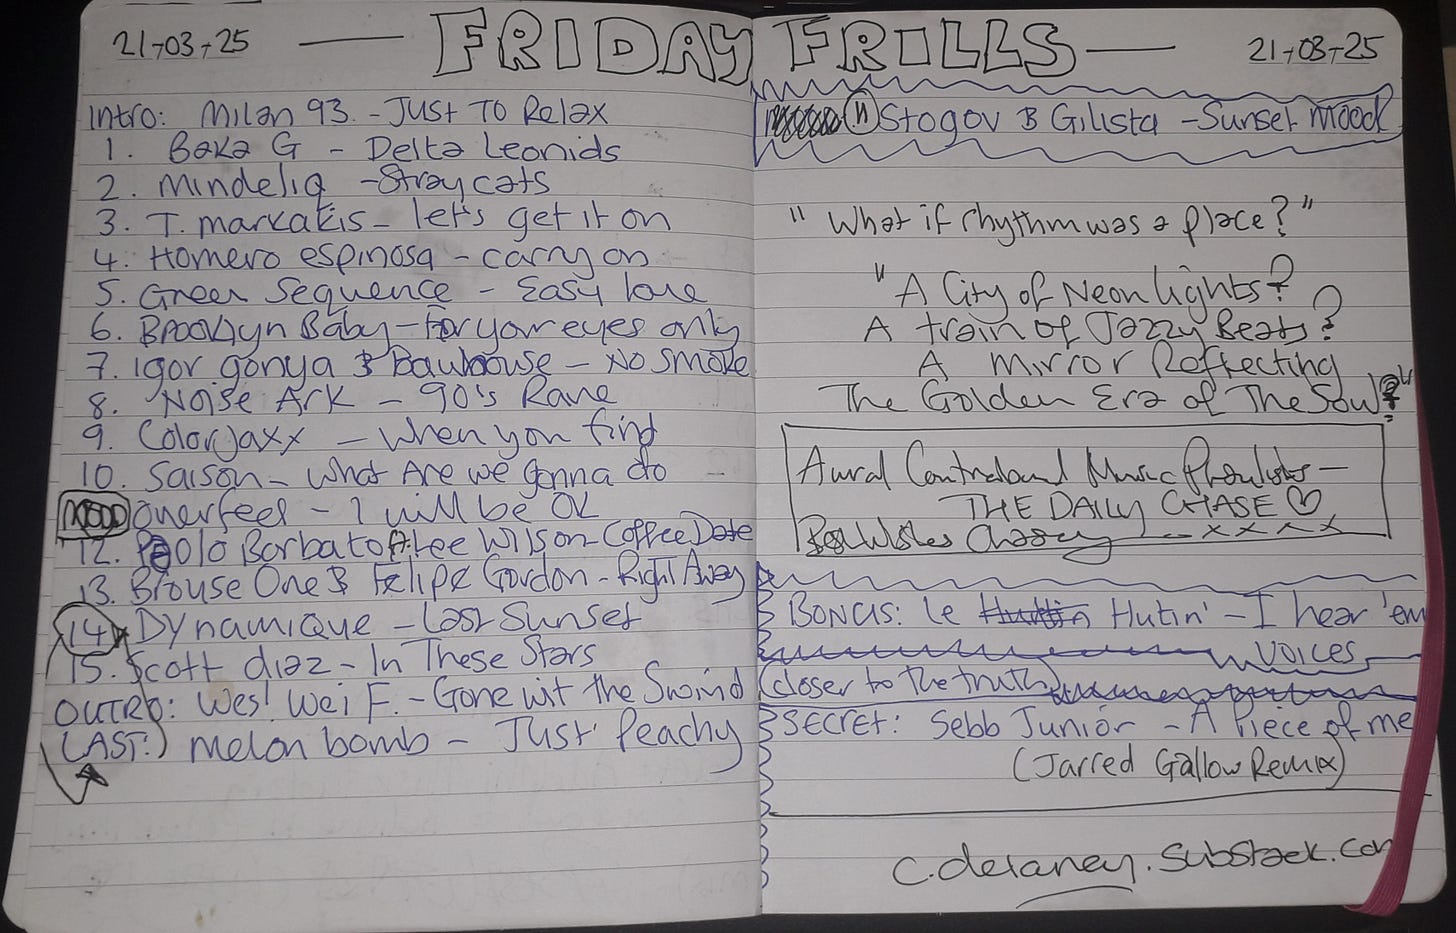 21-03-25 — FRIDAY FRILLS — 21-03-25
Intro: Milan 93. - Just To Relax
1. Baka G - Delta Leonids
2. Mindeliq - Stray cats
3. T. markakis - let's get it on
4. Homero espinosa - carry on
5. Green Sequence - Easy love
6. Brooklyn Baby - For your eyes only
7. Igor gonya & Bauhouse - No smoke
8. Noise Ark - 90's Rave
9. Colorjaxx - When you find
10. Saison - What Are we gonna do
overfeel - I will be OK
12. Paolo Barbato A. Lee Wilson - Coffee Date
13. Brouse One & Felipe Gordon - Right Away
14. Dynamique - Lost Sunset
15. Scott diaz - In These Stars
OUTRO: Wes! Wei F. - Gone wit the Swind
LAST: melon bomb - Just Peachy
11 Stogov & Gilista - Sunset mood
"What if rhythm was a place?"
"A City of Neon lights?
A train of Jazzy Beats?
A Mirror Reflecting
The Golden Era of The Soul?"
Aural Contraband Music Playlists -
THE DAILY CHASE ♡
Best Wishes Chasey - x x x x
BONUS: Le Hutin' - I hear 'em
voices
(closer to the truth)
SECRET: Sebb Junior - A Piece of me
(Jarred Gallow Remix)
c.delaney.substack.com